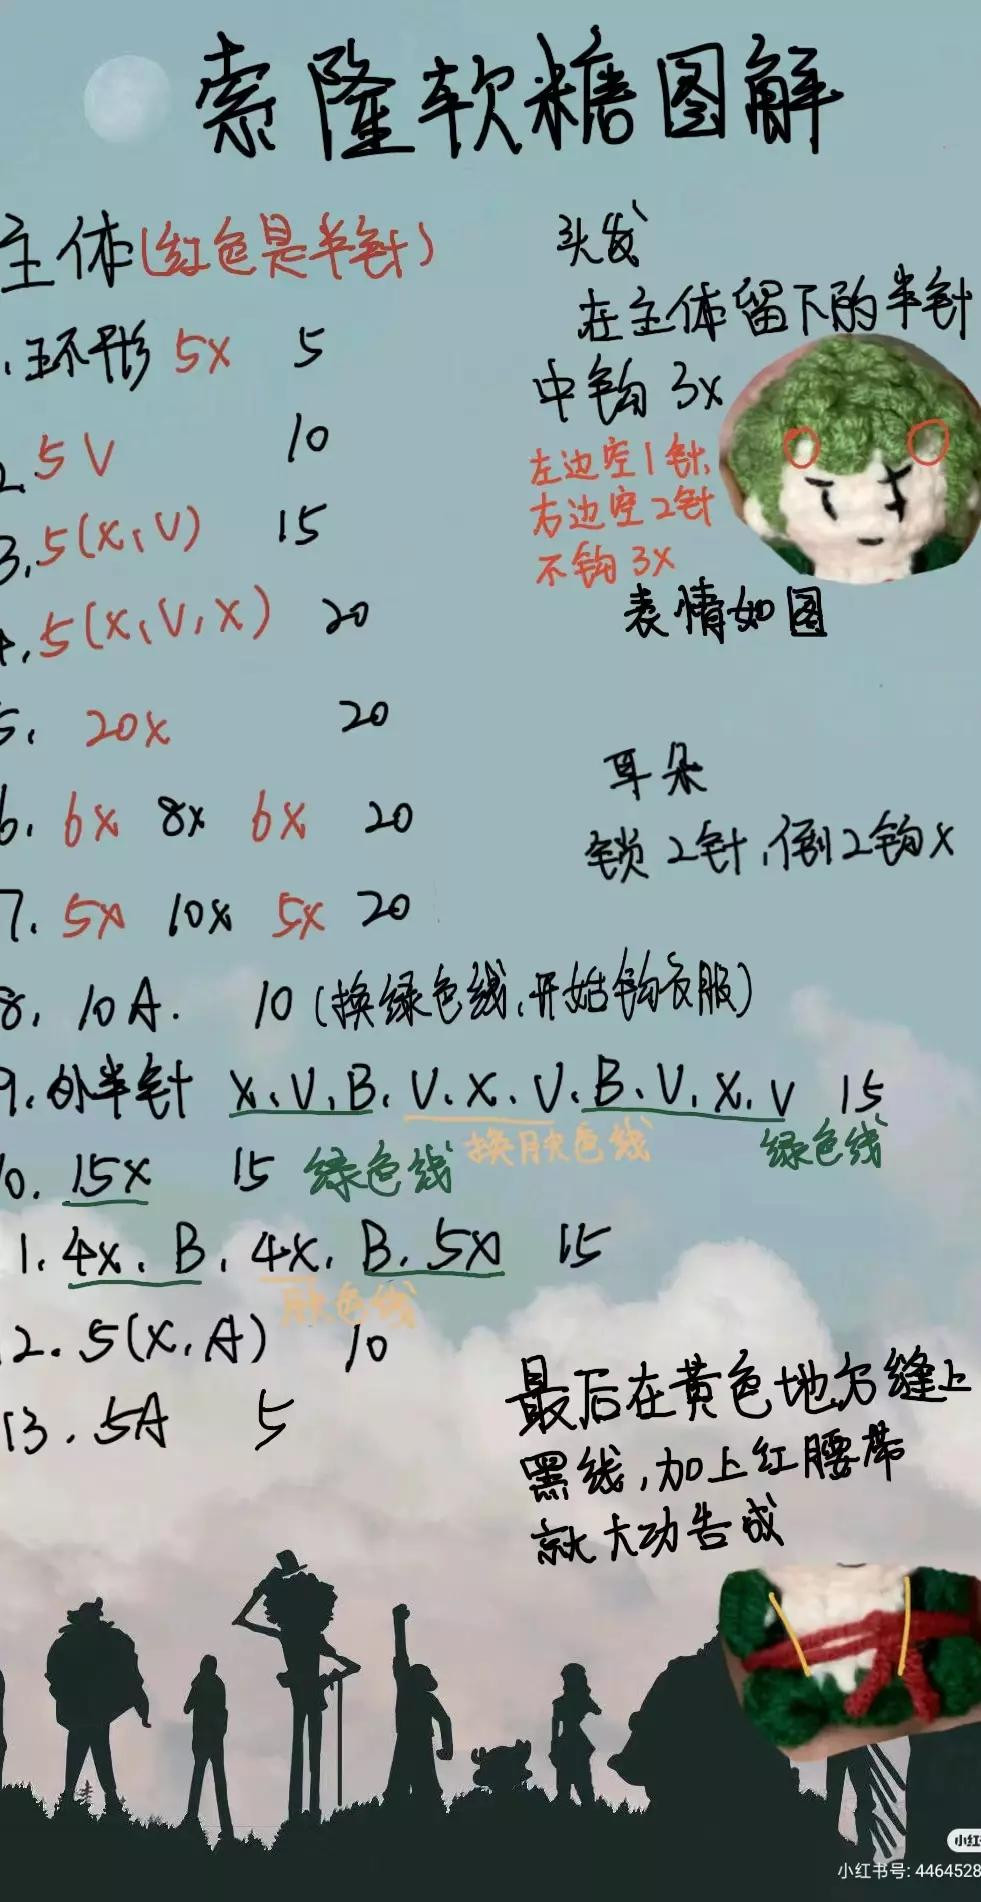 索隆软糖图解
主体(红色是半针)
.环形 5x 5
2.5V 10
3.5(x,V) 15
4.5(x,V,x) 20
5. 20x 20
6. 6x 8x 6x 20
7. 5x 10x 5x 20
8. 10A. 10(换绿色线,开始钩衣服)
9.外半针 x.V.B.V.x.V.B.V.x.V 15
换肤色线 绿色线
0. 15x 15 绿色线
1.4x.B.4x.B.5x 15
肤色线
2.5(x.A) 10
13.5A 5
头发
在主体留下的半针
中钩3x
左边空1针,
右边空2针
不钩3x
表情如图
耳朵
锁2针,倒2钩x
最后在黄色地方缝上
黑线,加上红腰带
就大功告成
小红
小红书号: 4464528